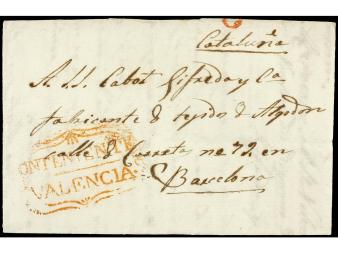 Cataluña
A. S.S. Cabot Gifreda y Ca
fabricante d tejidos d Algodon
calle d Carreta nº 72 en
Barcelona
ONTENIENTE
VALENCIA